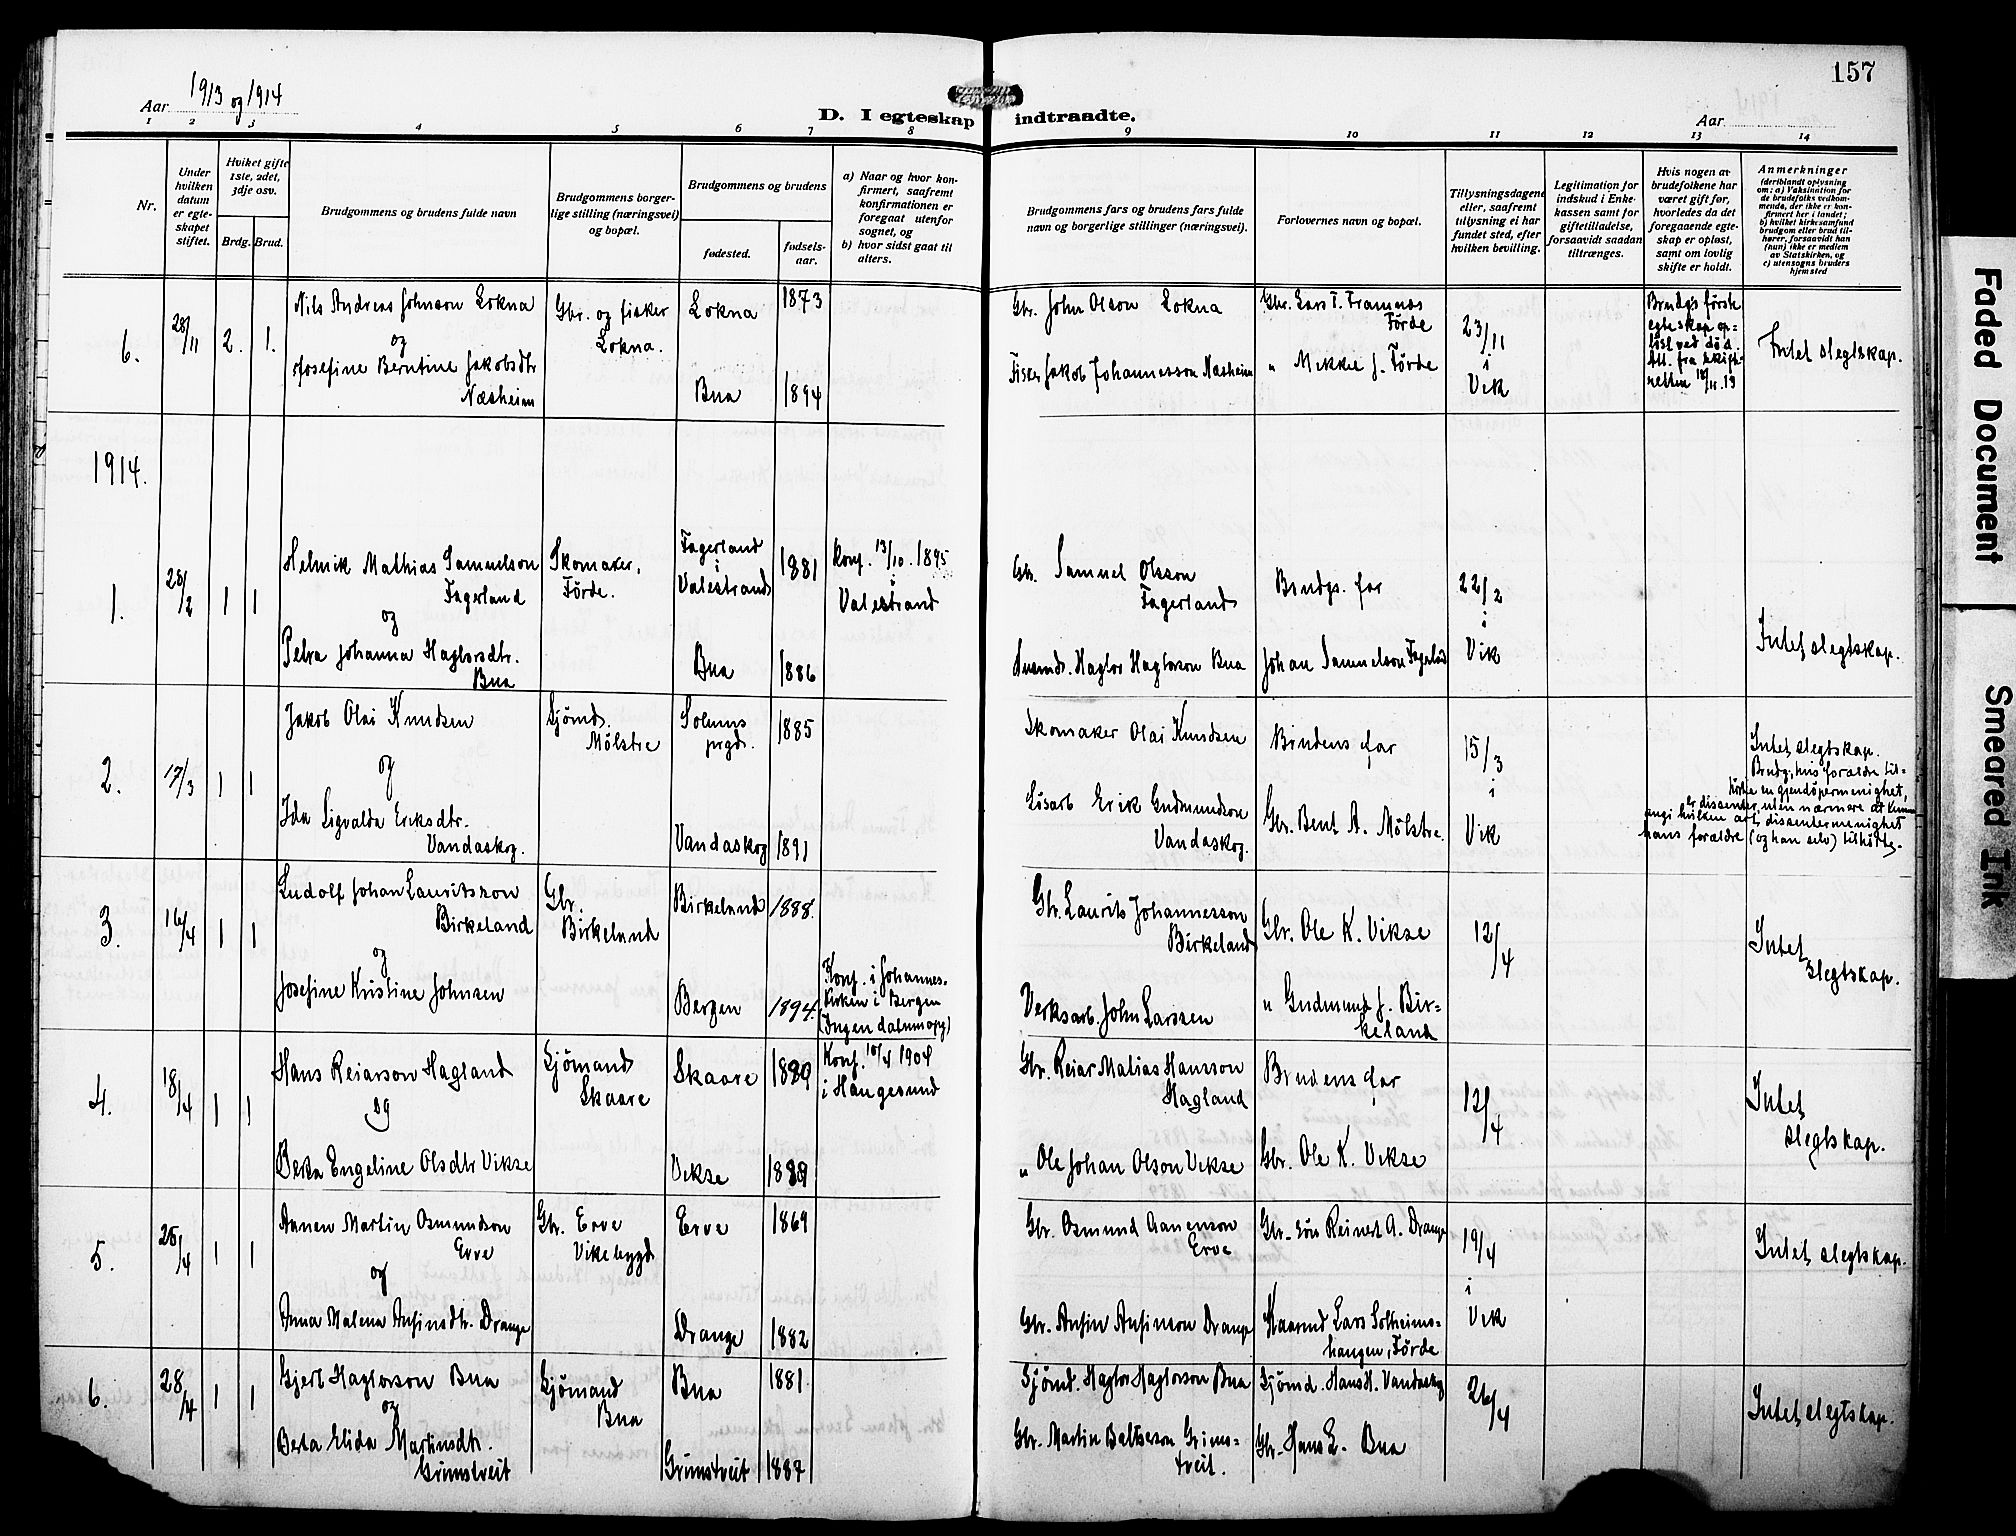 157
Aar 1913 og 1914
D. I egteskap indtraadte.
Aar
1 2 3 4 5 6 7 8 9 10 11 12 13 14
Nr.
Under hvilken datum er egteskapet stiftet.
Hvilket gifte 1ste, 2det, 3dje osv.
Brdg. Brud.
Brudgommens og brudens fulde navn
Brudgommens borgerlige stilling (næringsvei) og bopæl.
Brudgommens og brudens
fødested.
fødselsaar.
a) Naar og hvor konfirmert, saafremt konfirmationen er foregaat utenfor sognet, og
b) hvor sidst gaat til alters.
Brudgommens fars og brudens fars fulde navn og borgerlige stillinger (næringsvei).
Forlovernes navn og bopæl.
Tillysningsdagene eller, saafremt tillysning ei har fundet sted, efter hvilken bevilling.
Legitimation for indskud i Enkekassen samt for giftetilladelse, forsaavidt saadan tiltrænges.
Hvis nogen av brudefolkene har været gift før, hvorledes da det foregaaende egteskap er opløst, samt om lovlig skifte er holdt.
Anmerkninger
(deriblandt oplysning om: a) Vaksination for de brudefolks vedkommende, der ikke er konfirmert her i landet; b) hvilket kirkesamfund brudgom eller brud tilhører, forsaavidt han (hun) ikke er medlem av Statskirken, og c) utensogns bruders hjemsted
6. 28/11 2. 1.
Nils Andreas Johnson Lokna
og
Josefine Berntine Jakobsdtr
Næsheim
Gbr. og fisker
Lokna.
Lokna 1873
Bua 1894
Gbr. John Olson Lokna
Fisker Jakob Johannesson Næsheim
Gbr. Lars T. Framnes
Førde
" Mikkel J. Førde
23/11
i
Vik
Brudgs første
egteskap op=
løst ved død.
Att. fra skifte
retten 18/11.13
Intet slegtskap.
1914.
1. 28/2 1 1
Helmik Mathias Samuelson
Fagerland
og
Petra Johanna Haglorsdtr.
Bua
Skomaker,
Førde.
Fagerland
i
Valestrand
1881
Bua 1886
konf. 13/10. 1895
i
Valestrand
Gbr. Samuel Olsson
Fagerland
Husmd. Haglor Haglorson Bua
Brudgs. far
Johan Samuelson Fagerland
22/2
i
Vik
Intet slegtskap.
2. 17/3 1 1
Jakob Olai Knudsen
og
Ida Sigvalda Eriksdtr.
Vandaskog.
Sjømd.
Mølstre
Solums
prgd.
1885
Vandaskog 1891
Skomaker Olai Knudsen
Løsarb Erik Gudmundson
Vandaskog.
Brudens far
Gbr. Bent A. Mølstre
15/3
i
Vik
Intet slegtskap.
Brudg, hvis forældre til=
hørte en gjendøpermenighet,
er dissenter, uten nærmere at kunne
angi hvilken art dissentermenighet
hans forældre (og han selv) tilhørte.
3. 16/4 1 1
Ludolf Johan Lauritsson
Birkeland
og
Josefine Kristine Johnsen
Gbr.
Birkeland
Birkeland 1888.
Bergen 1894.
Konf. i Johannes-
kirken i Bergen
(Ingen datumopg)
Gbr. Laurits Johannesson
Birkeland
Verksarb. John Larssen
Gbr. Ole K. Vikse
" Gudmund J. Bir=
keland
12/4
Intet
slegtskap.
4. 18/4 1 1
Hans Reiarson Hagland
og
Berta Engeline Olsdtr Vikse
Sjømand
Skaare
Skaare 1889
Vikse 1889
Konf. 10/4 1904
i Haugesund
Gbr. Reiar Matias Hansson
Hagland
" Ole Johan Olson Vikse
Brudens far
Gbr. Ole K. Vikse
12/4
Intet
slegtskap.
5. 25/4 1 1
Aanen Martin Osmundson
Erve
og
Anna Malena Ansinsdtr. Drange
Gbr. Erve
Vikebygd
Erve 1869
Drange 1882
Gbr. Osmund Aanenson
Erve
Gbr. Ansin Ansinson Drange
Gbr-søn Reinert A. Drange
Kaarmd Lars Solheims-
haugen, Førde
19/4
i
Vik
Intet slegtskap.
6. 28/4 1 1
Gjert Haglorson Bua
og
Berta Elida Martinsdtr.
Grimstveit
Sjømand
Bua
Bua 1881.
Grimstveit 1887
Sjømd. Haglor Haglorson Bua
Gbr. Martin Baltserson Grims=
tveit.
Sjømd. Hans H. Vandaskog
Gbr. Hans L. Bua
26/4
Intet slegtskap.
Faded Document
Smeared Ink